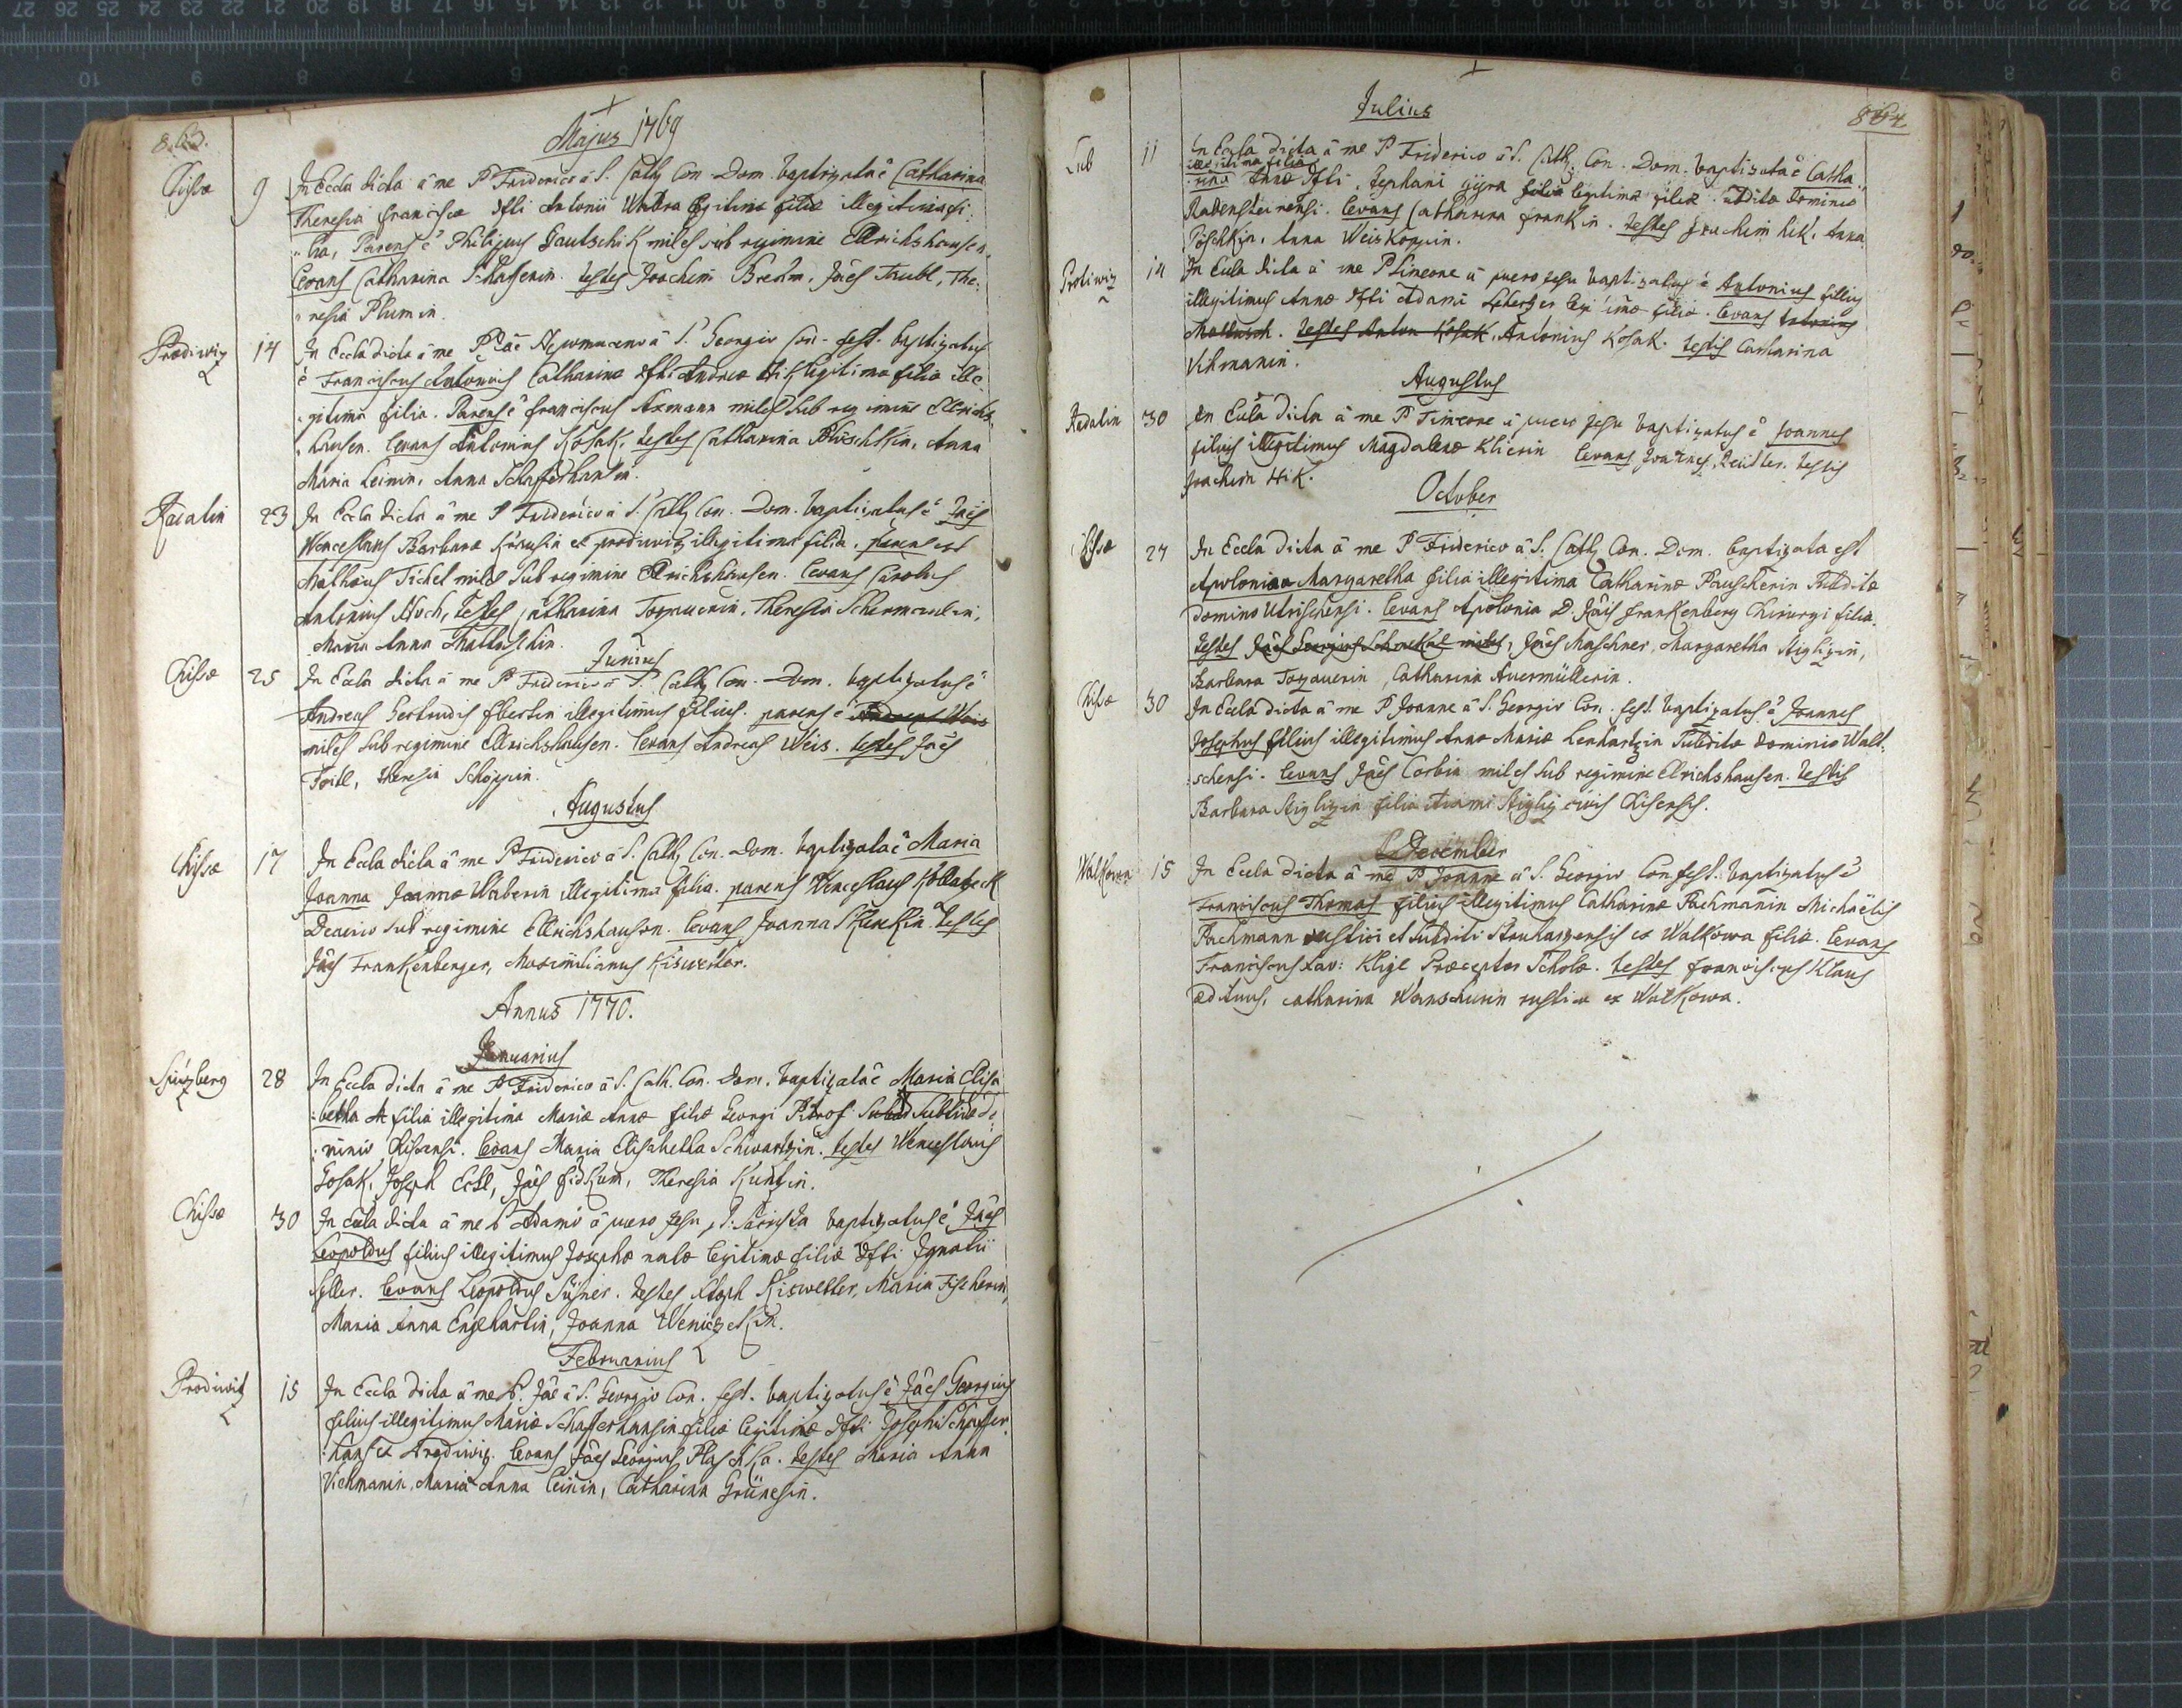 863.
Majus 1769
Chissæ 9 In Eccla dicta â me P Friderico â S. Cath Con. Dom. baptizata ê Catharina
Theresia Franciscæ dfti Antonii Wabra legitima filiæ illegitima fi:
:lia, Parens ê Philipus Gautschik miles sub regimine Ellrichshausen.
levans Catharina Schafferin. testes Joachim Brehm, Jães Traubl, The:
:resia Plumin.
Prodiwiz 14 In Eccla dicta â me P Jãe Nepomuceno â S. Georgio Con. fess. baptizatus
ê Franciscus Antonius Catharinæ dfti Andreæ Hik legitima filiæ ille
:gitima filia. Parens ê Franciscus Axmann miles sub regimine Ellrichs
:hausen. levans Antonius Kosak, testes Catharina Pluschkin, Anna
Maria Leinin, Anna Schafferhansin.
Radalin 23 In Eccla dicta â me P Friderico â S. Cath Con. Dom. baptizatus ê Jães
Wenceslaus Barbaræ Krausin ex prodiwiz illegitima filia. parens est
Mathæus Tichel miles sub regimine Ellrichshausen. levans Carolus
Antonius Hoch, testes Catharina Tozauerin, Theresia Schermaulin,
Maria Anna Mattuschkin.
Junius
Chissæ 25 In Eccla dicta â me P Friderico â S. Cath Con. Dom. baptizatus ê
Andreas Gertrudis Ebertin illegitimus filius. parens ê Andreas Weis
miles sub regimine Ellrichshausen. levans Andreas Weis. testes Jães
Foitl, Theresia Schöppin.
Augustus
Chissæ 17 In Eccla dicta â me P Friderico â S. Cath Con. Dom. baptizata ê Maria
Joanna Joannæ Waberin illegitima filia. parens Wenceslaus Kollabeck
sub regimine Ellrichshausen. levans Joanna Skrenkin. testes
Jães Frankenberger, Maximilianus Kiswetter.
Annus 1770.
Januarius
Spizberg 28 In Eccla dicta â me P Friderico â S. Cath. Con. Dom. baptizata ê Maria Elisa
:betha filia illegitima Mariæ Annæ filiæ Georgi Pitrof subditæ do
:minio Chisensi. levans Maria Elisabetha Schwartzin. testes Wenceslaus
Gosak, Joseph Eckl, Jães Fidkum, Theresia Kuntzin.
Chissæ 30 In Eccla dicta â me P Adamo â puero Jesu, baptizatus ê Jães
Leopoldus filius illegitimus Josephæ natæ legitimæ filiæ dfti Ignatii
Eller. levans Leopoldus Füssner. testes Xtoph Kiswetter, Maria Fischerin,
Maria Anna Engelhartin, Joanna Weniczekin.
Februarius
Prodiwiz 15 In Eccla dicta â me P. Jãe â S. Georgio Con. fess. baptizatus ê Jães Georgius
filius illegitimus Mariæ Schafferhansin filiæ legitimæ dfti Josephi Schaffer
:hans ex Prodiwiz. levans Jães Georgius Plaschka. testes Maria Anna
Vichmanin, Maria Anna Leinin, Catharina Grünesin.
864
Julius
Lub 11 In Eccla dicta â me P Friderico â S. Cath Con. Dom. baptizata ê Catha:
illegitima filia
:rina Annæ dfti Stephani filia legitima filiæ subditæ Dominio
Rabensteinensi. levans Catharina Frankin. testes Joachim Hik, Anna
Pöschkin, Anna Weiskopfin.
Protiwiz 14 In Eccla dicta â me P Simeone â puero Jesu baptizatus ê Antonius filius
illegitimus Annæ dfti Adami legitimæ filiæ. levans Antonius
Mattusch. testes Anton Kosak, Antonius Kosak. testis Catharina
Vihmanin.
Augustus
Radalin 30 In Eccla dicta â me P Simeone â puero Jesu baptizatus ê Joannes
filius illegitimus Magdalenæ Klierin levans Joannes Reitler. testis
Joachim Hik.
October
Chissæ 27 In Eccla dicta â me P Friderico â S. Cath Con. Dom. baptizata est
Apolonia Margaretha filia illegitima Catharinæ Pauscherin subditæ
Domino Utvischensi. levans Apolonia D. Jãis Frankenberg Chirurgi filia.
testes Jães Georgius miles, Jães Maschner, Margaretha Stiglizin,
Barbara Tozauerin, Catharina Auermüllerin.
Chissæ 30 In Eccla dicta â me P Joanne â S. Georgio Con. fess. baptizatus ê Joannes
Josephus filius illegitimus Annæ Mariæ Lenhartzin subditæ Dominio Walt:
:schensi. levans Jães Corbin miles sub regimine Elrichshausen. testis
Barbara Stiglizin filia Adami Stigliz civis Chisensis.
December
Walkowa 15 In Eccla dicta â me P Joanne â S. Georgio Confess. baptizatus ê
Franciscus Thomas filius illegitimus Catharinæ Pachmanin Michaëlis
Pachmann rustici et subditi ex Walkowa filiæ. levans
Franciscus Xav: Kligl Præceptor Scholæ. testes Franciscus Klaus
ædituus, Catharina Wanschurin rustica ex Walkowa.